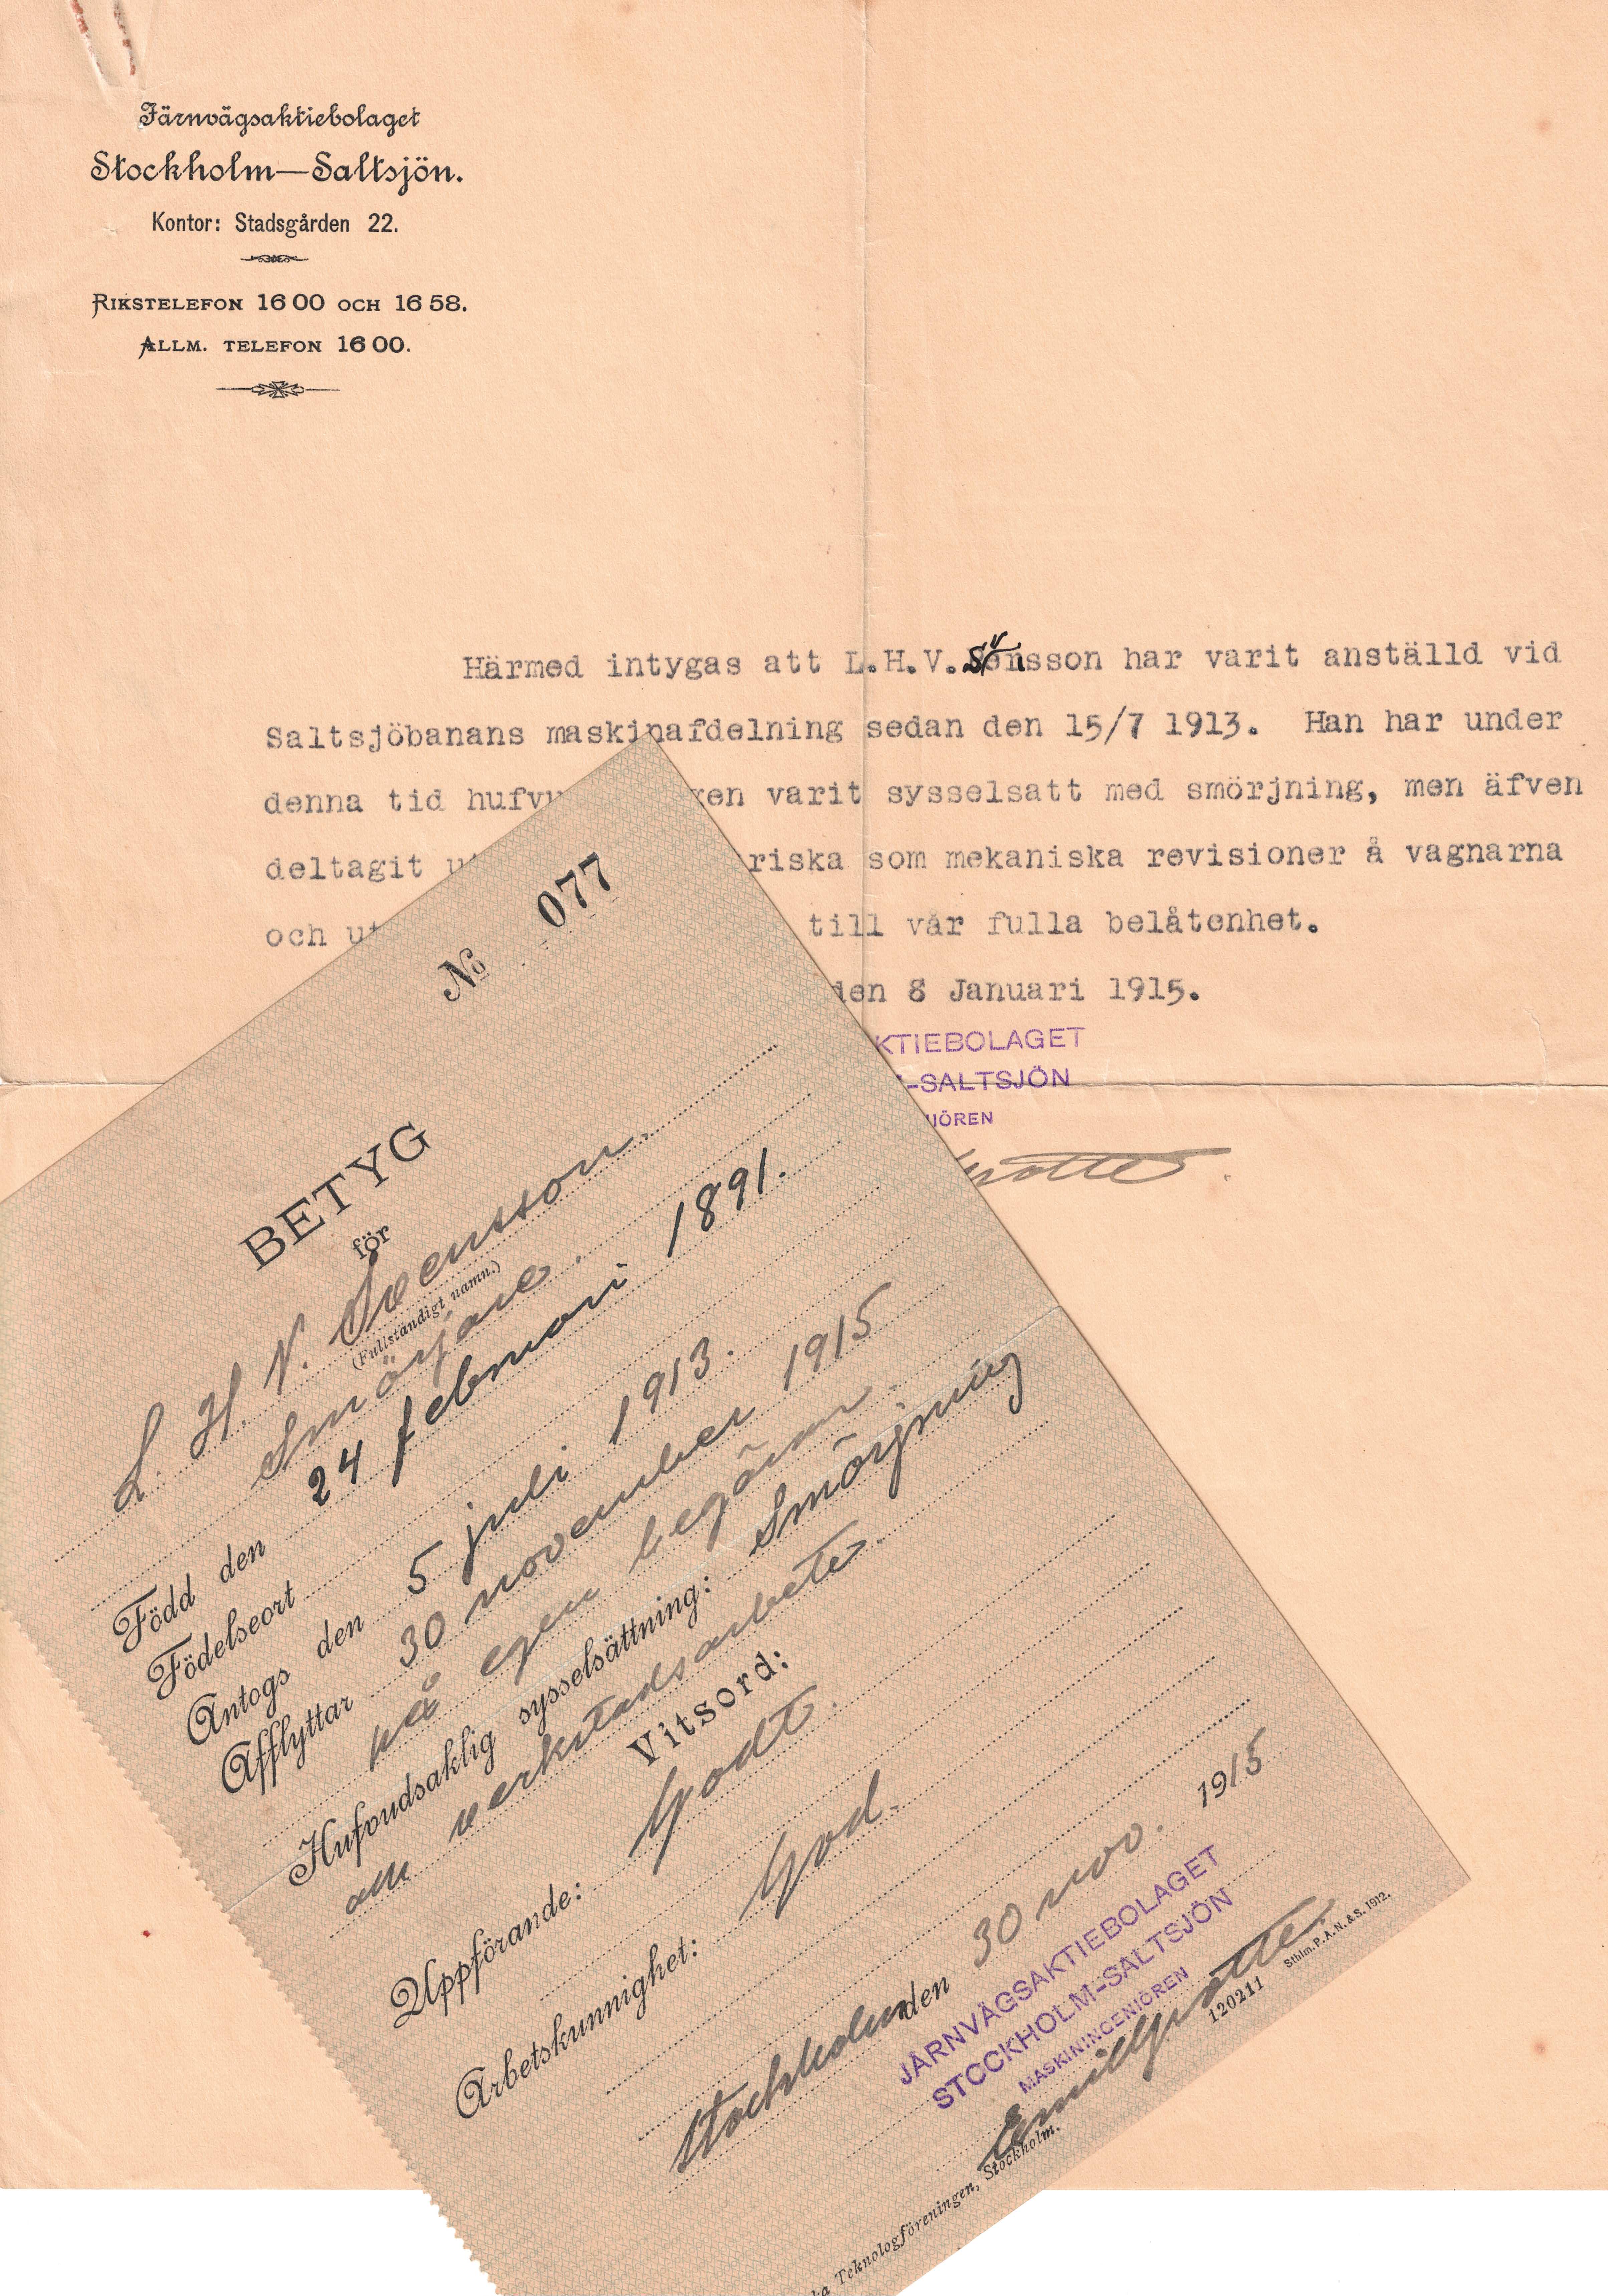 Järnvägsaktiebolaget
Stockholm—Saltsjön.
Kontor: Stadsgården 22.
RIKSTELEFON 16 00 OCH 16 58.
ALLM. TELEFON 16 00.
Härmed intygas att L.H.V. Svensson har varit anställd vid
Saltsjöbanans maskinafdelning sedan den 15/7 1913. Han har under
denna tid varit sysselsatt med smörjning, men äfven
deltagit riska som mekaniska revisioner å vagnarna
och till vår fulla belåtenhet.
den 8 Januari 1915.
KTIEBOLAGET
-SALTSJÖN
IÖREN
No 077
BETYG
för
L. H. V. Svensson.
(Fullständigt namn.)
Smörjare.
Född den 24 februari 1891.
Födelseort
Antogs den 5 juli 1913.
Afflyttar 30 november 1915
på egen begäran.
Hufvudsaklig sysselsättning: Smörjning
och verkstadsarbete.
Vitsord:
Uppförande: Godt.
Arbetskunnighet: God.
Stockholm den 30 nov. 1915
JÄRNVÄGSAKTIEBOLAGET
STOCKHOLM-SALTSJÖN
MASKININGENIÖREN
Emil
120211 Sthlm. P. A. N. & S. 1912.
ka Teknologföreningen, Stockholm.